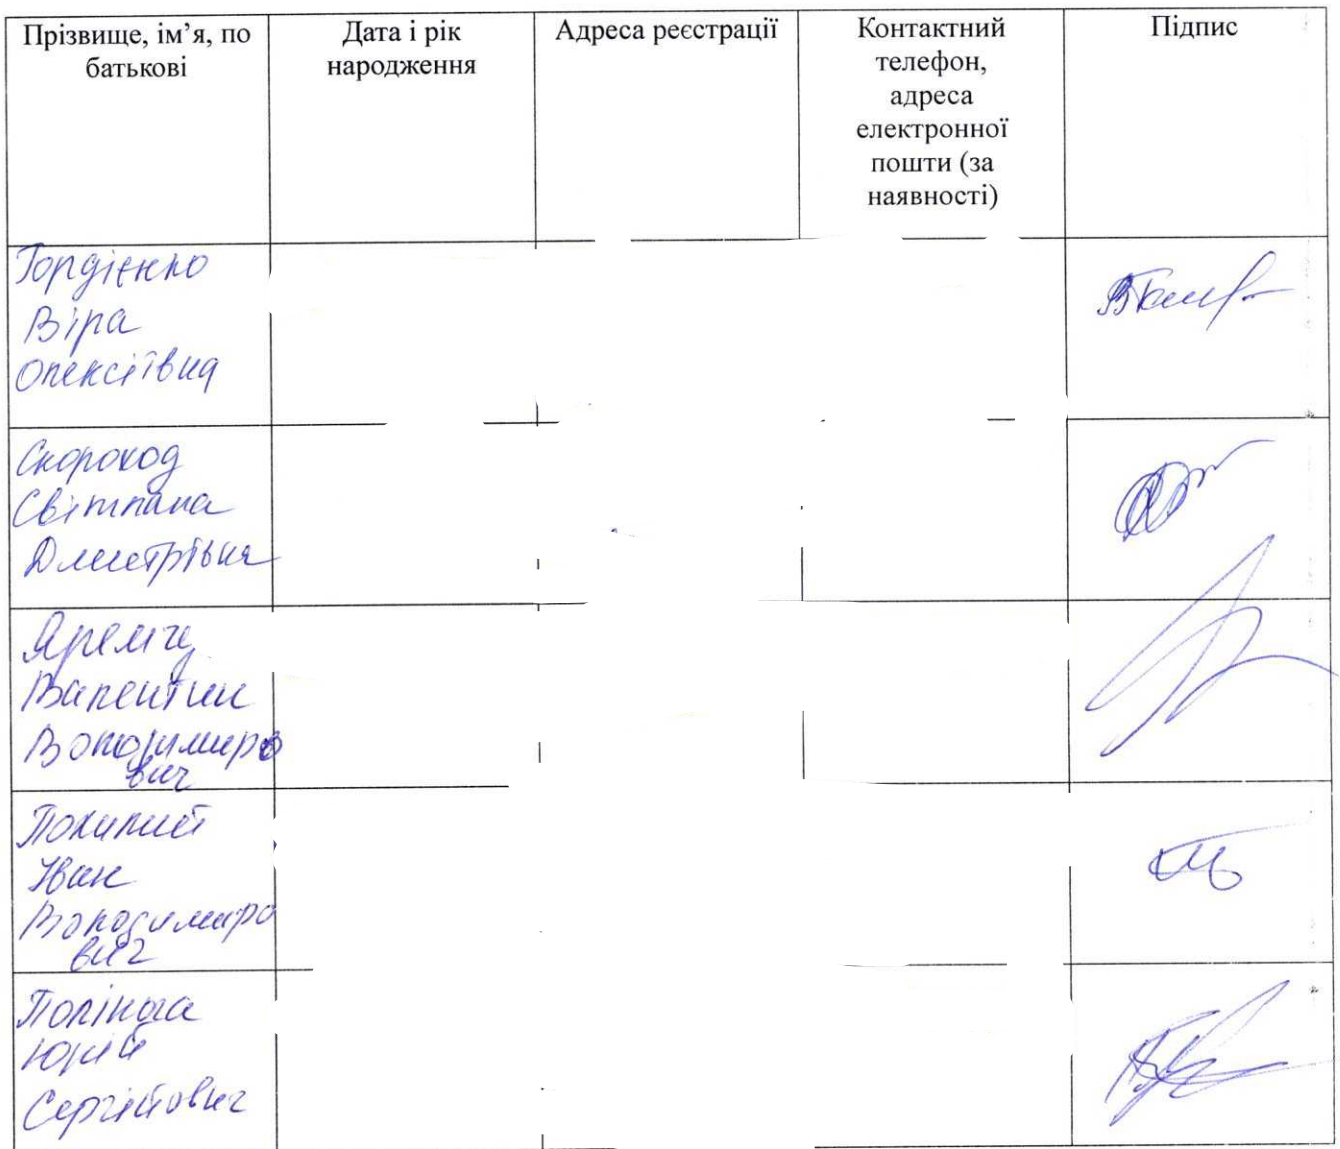 Прізвище, ім’я, по
батькові
Дата і рік
народження
Адреса реєстрації
Контактний
телефон,
адреса
електронної
пошти (за
наявності)
Підпис
Гордієнко
Віра
Олексіївна
Скороход
Світлана
Дмитрівна
Яремчу
Валентин
Володимиро
вич
Похилий
Іван
Володимиро
вич
Юрій
Сергійович